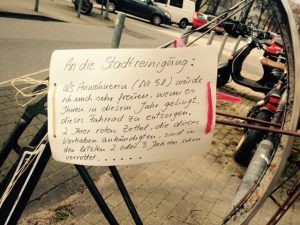 An die Stadtreinigung:
Als Anwohnerin (Nr 58) würde
ich mich sehr freuen, wenn es
Ihnen in diesem Jahr gelingt,
dieses Fahrrad zu entsorgen.
2 Ihrer roten Zettel, die dieses
Vorhaben ankündigten, sind in
den letzten 2 oder 3 Jahren schon
verrottet......